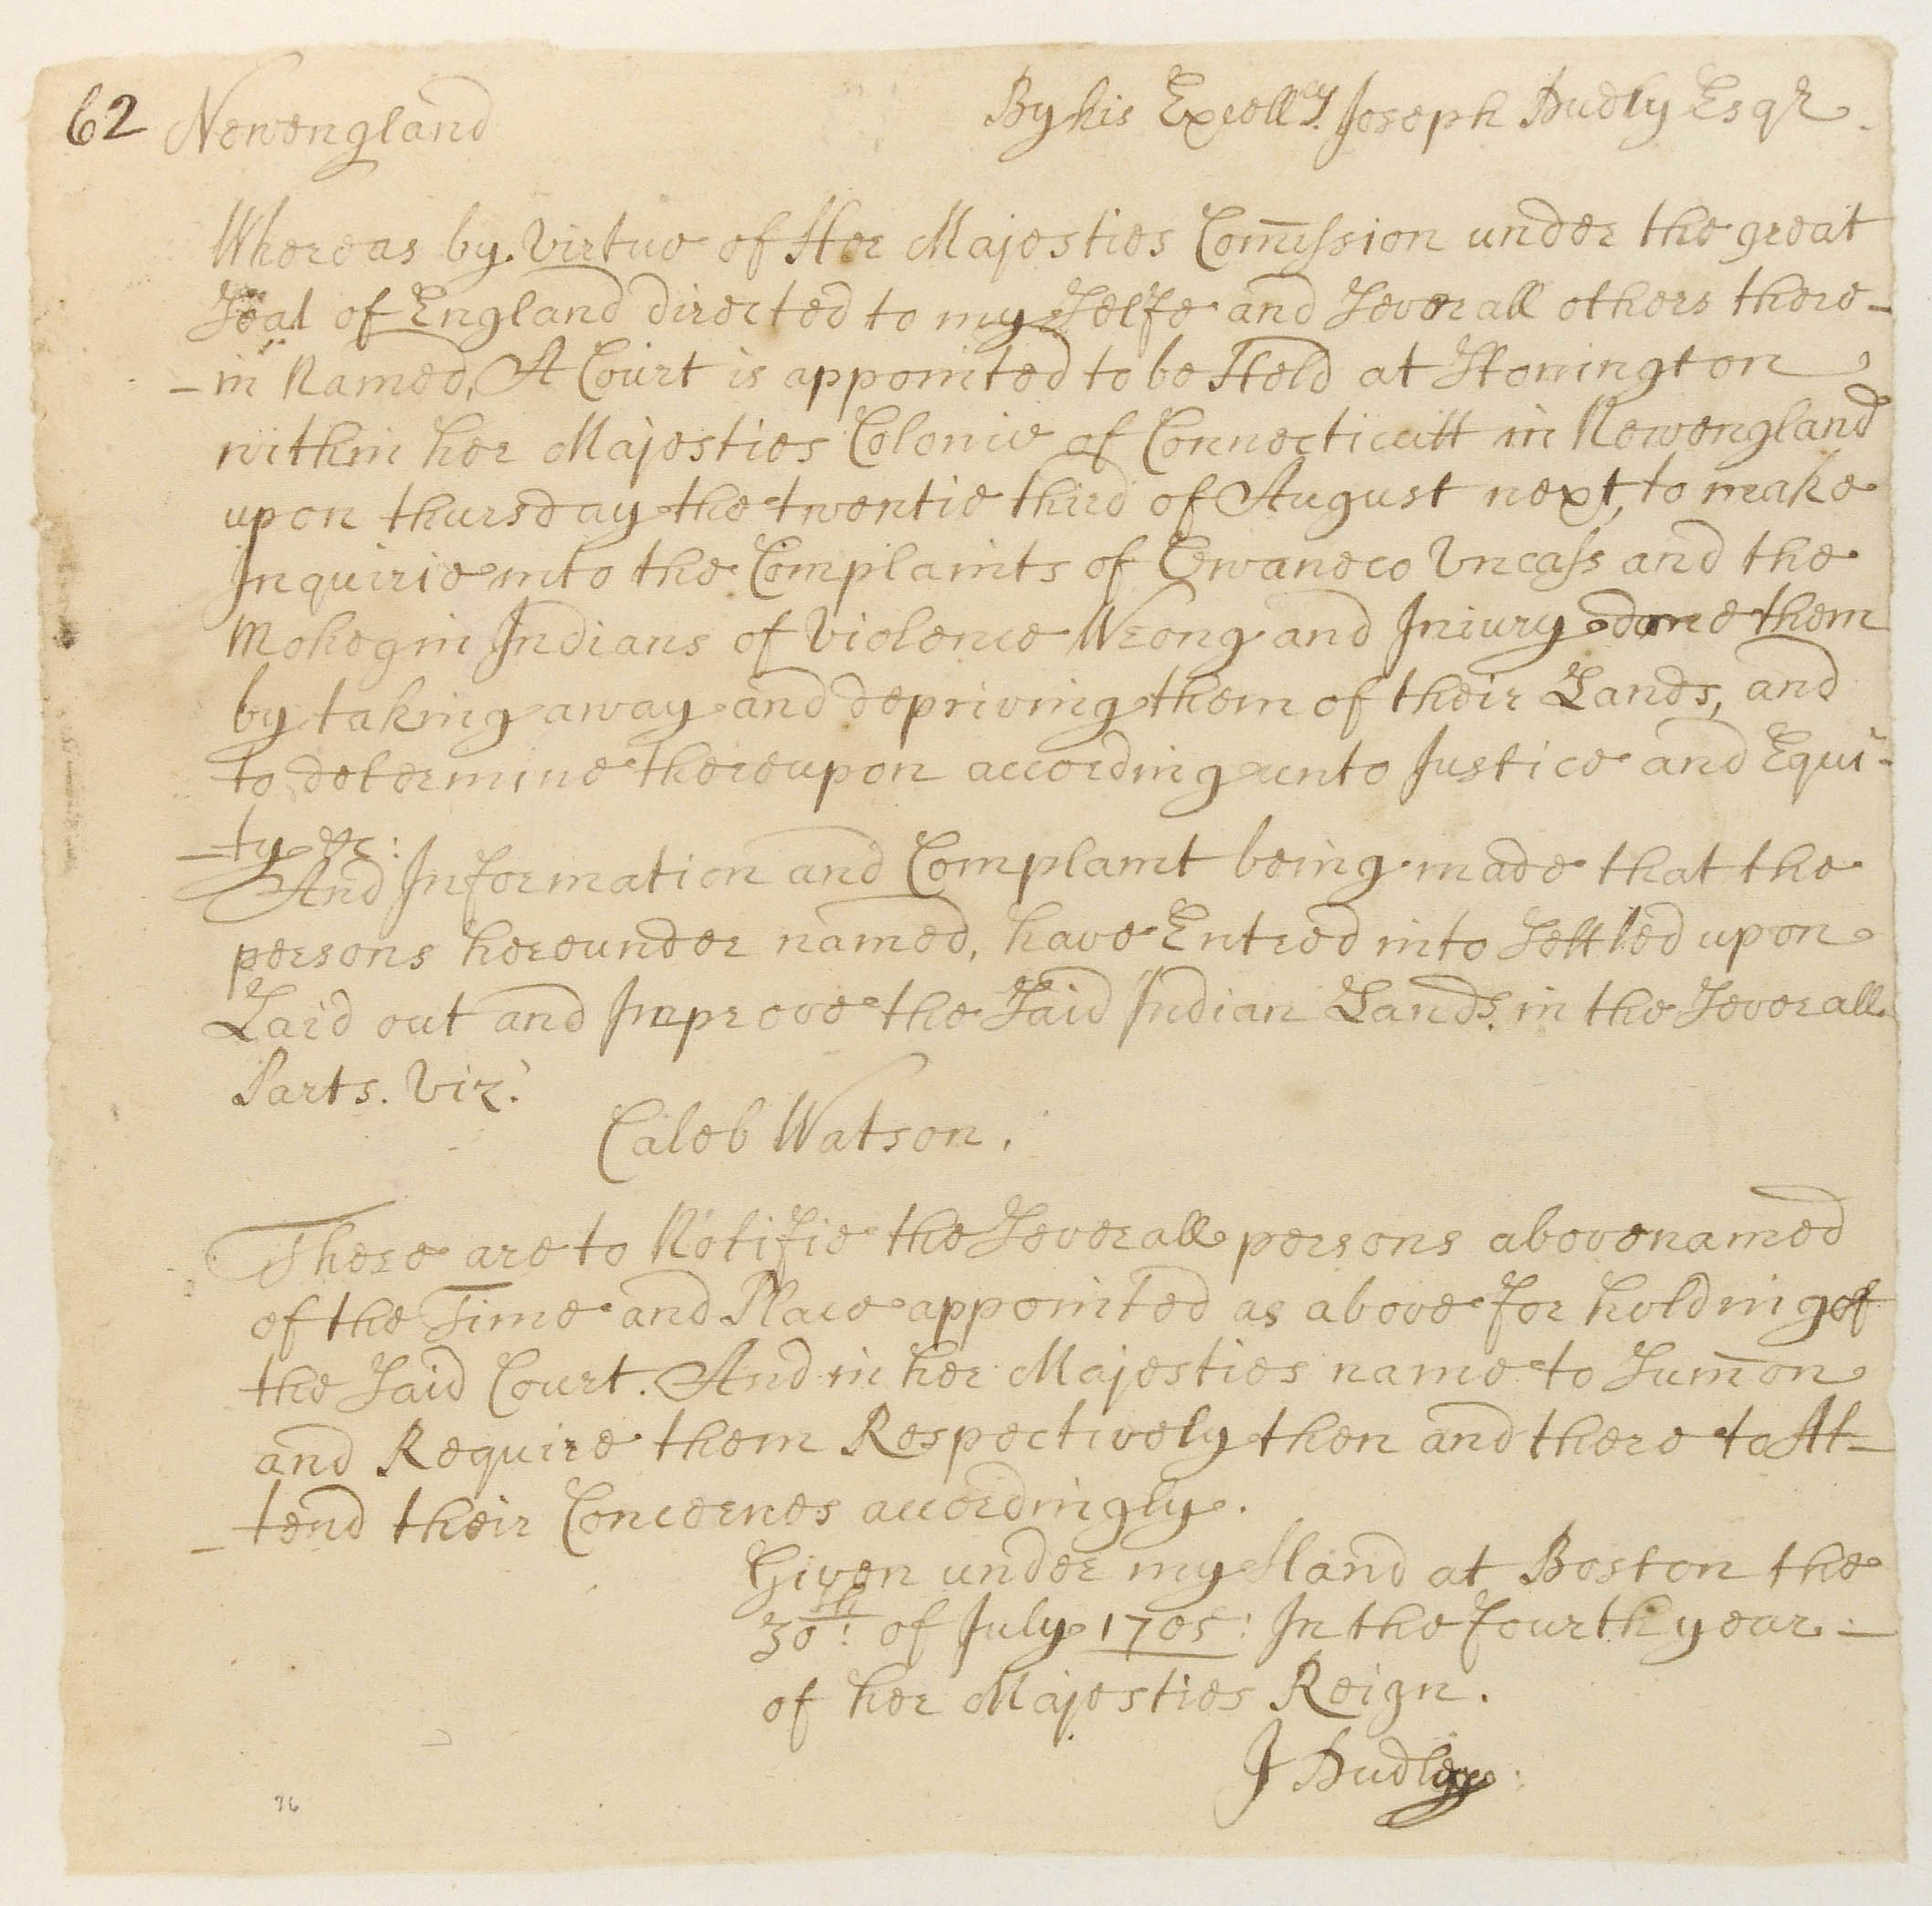 62 Newengland
By his Excellcy. Joseph Dudly Esqr.
Whereas by Virtue of Her Majesties Com̅ission under the great
Seal of England directed to my Selfe and Severall others there-
-in Named, A Court is appointed to be Held at Stonington
within her Majesties Colonie of Connecticutt in Newengland
upon thursday the twentie third of August next, to make
Inquirie into the Complaints of Owaneco Uncass and the
Mohegin Indians of Violence Wrong and Iniury done them
by taking away and depriving them of their Lands, and
to determine thereupon according unto Justice and Equi-
-ty &c:
And Information and Complaint being made that the
persons hereunder named, have Entred into Settled upon
Laid out and Improve the Said Indian Lands. in the Severall
Parts. Viz.
Caleb Watson.
These are to Notifie the Severall persons abovenamed
of the Time and Place appointed as above for holding of
the Said Court. And in her Majesties name to Sum̅on
and Require them Respectively then and there to At-
-tend their Concernes accordingly.
Given under my Hand at Boston the
30th: of July 1705: In the fourth year -
of her Majesties Reign.
J Dudley:
76